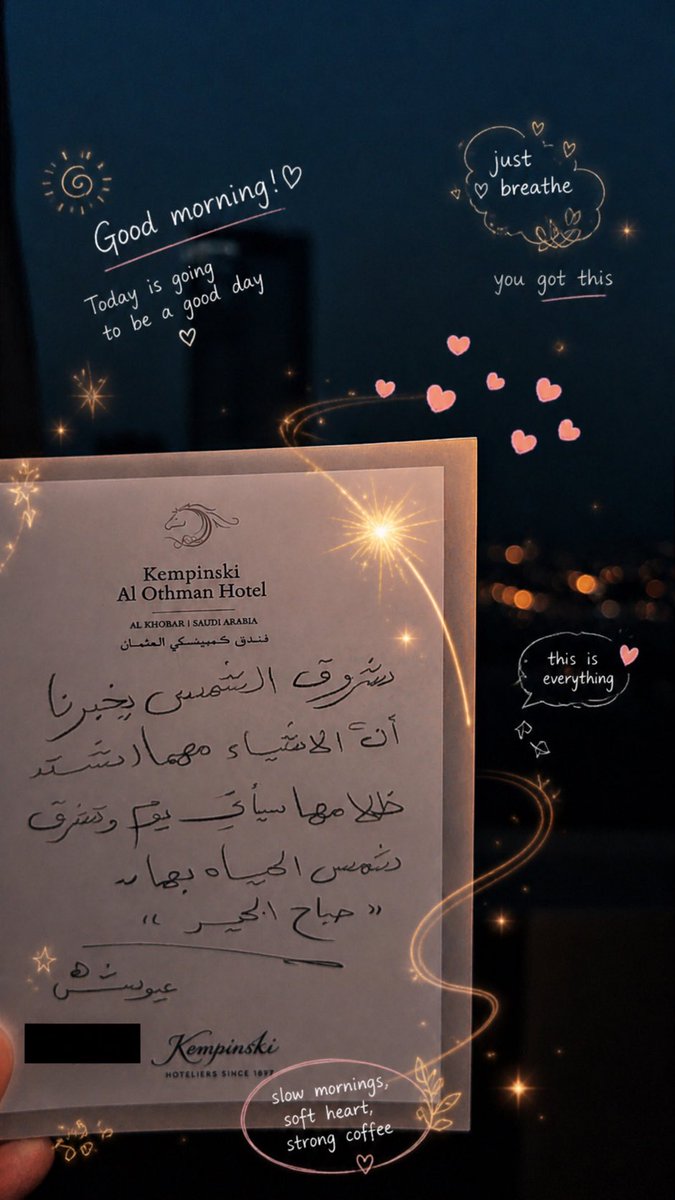 Good morning!
Today is going
to be a good day
just
breathe
you got this
Kempinski
Al Othman Hotel
AL KHOBAR | SAUDI ARABIA
فندق كمبينسكي العثمان
شروق الشمس يخبرنا
أنّ الاشياء مهما اشتد
ظلامها سيأتي يوم وتشرق
شمس الحياه بها
" صباح الخير "
this is
everything
Kempinski
HOTELIERS SINCE 1897
slow mornings,
soft heart,
strong coffee